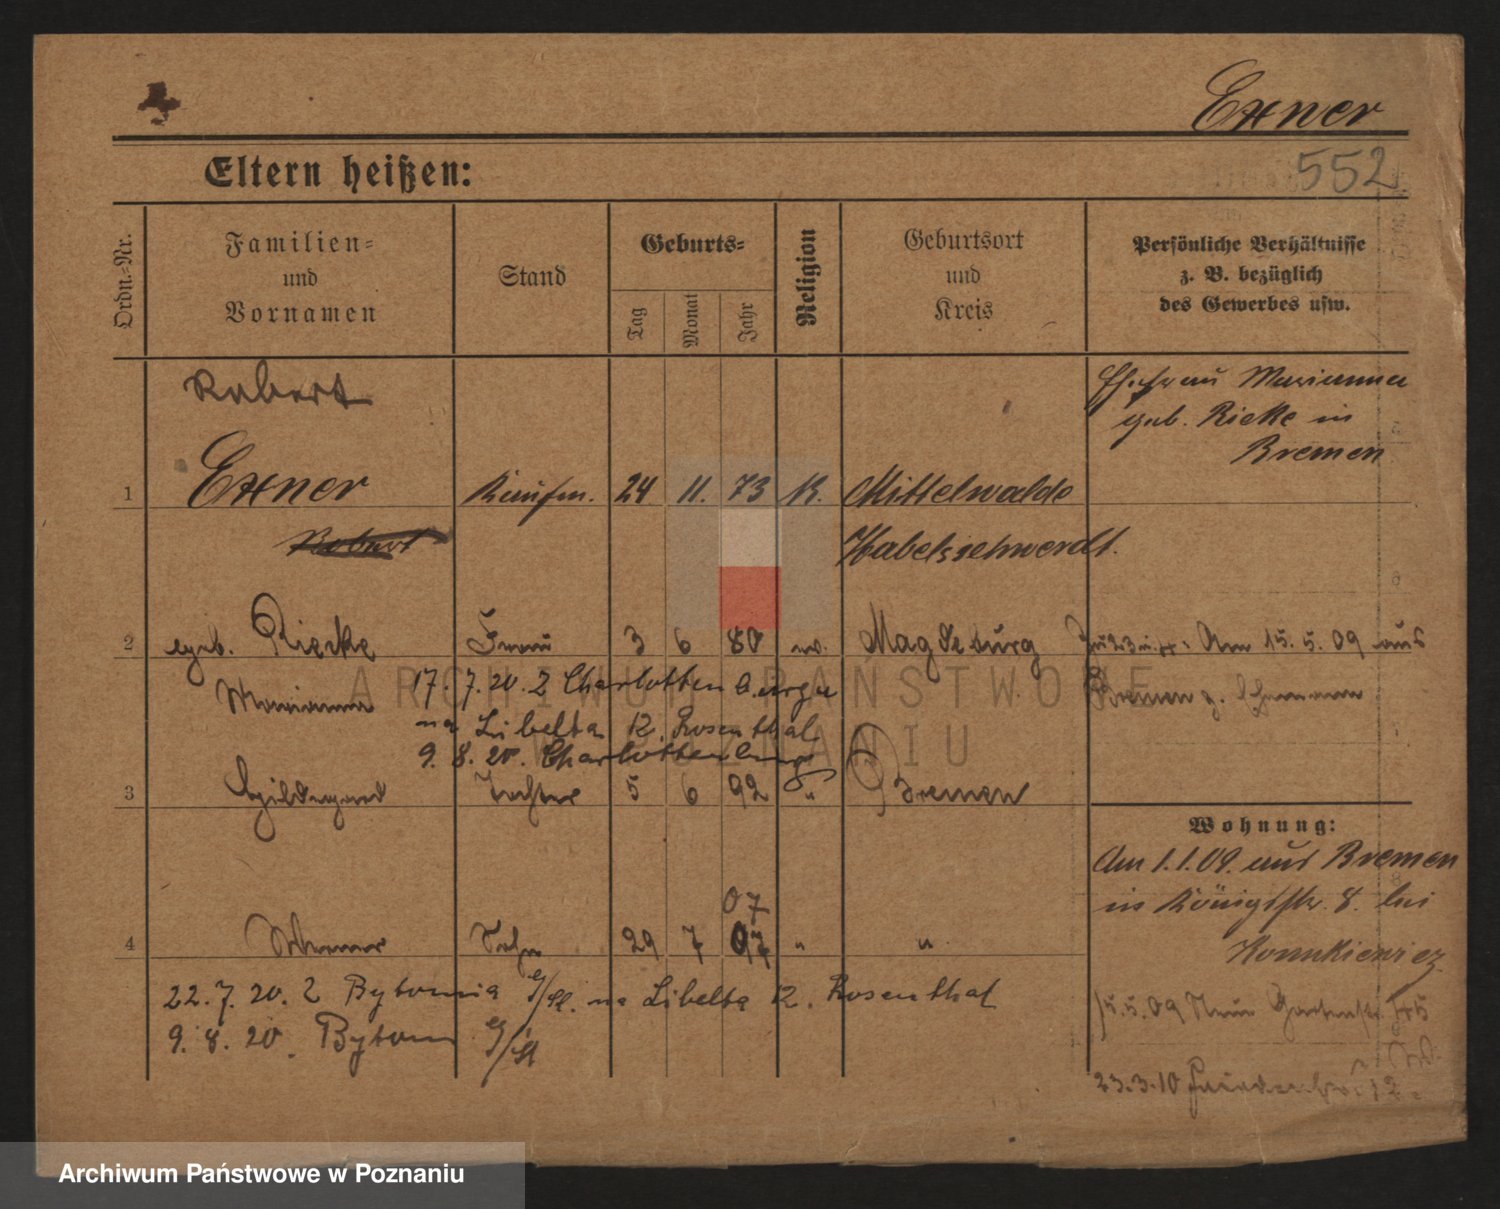 Exner
552
Eltern heißen:
Ordn.-Nr.
Familien-
und
Vornamen
Stand
Geburts-
Tag
Monat
Jahr
Religion
Geburtsort
und
Kreis
Persönliche Verhältnisse
z. B. bezüglich
des Gewerbes usw.
Robert
Ehefrau Marianna
geb. Rieke in
Bremen
1 Exner Kaufm. 24 11. 73 K. Mittelwalde
Robert Habelschwerdt.
2 geb. Riecke Frau 3 6 80 Magdeburg Zu 2 3 u. 4. Am 15. 5. 09 aus
Marianna 17. 7. 20. Z Charlottenburga Bremen z.
na Libelta 12. Rosenthal
9. 8. 20. Charlottenburg
3 Hildegard Tochter 5 6 92 " Bremen
Wohnung:
Am 1. 1. 09. aus Bremen
in Königstr. 8. bei
07
4 Werner Sohn 29 7 07 " "
22. 7. 20. Z Bytomia g/Śl. na Libelta 12. Rosenthal
15. 5. 09 Neue Gartenstr. 45
9. 8. 20. Bytom g/Śl
23. 3. 10
ARCHIWUM PAŃSTWOWE
W POZNANIU
Archiwum Państwowe w Poznaniu